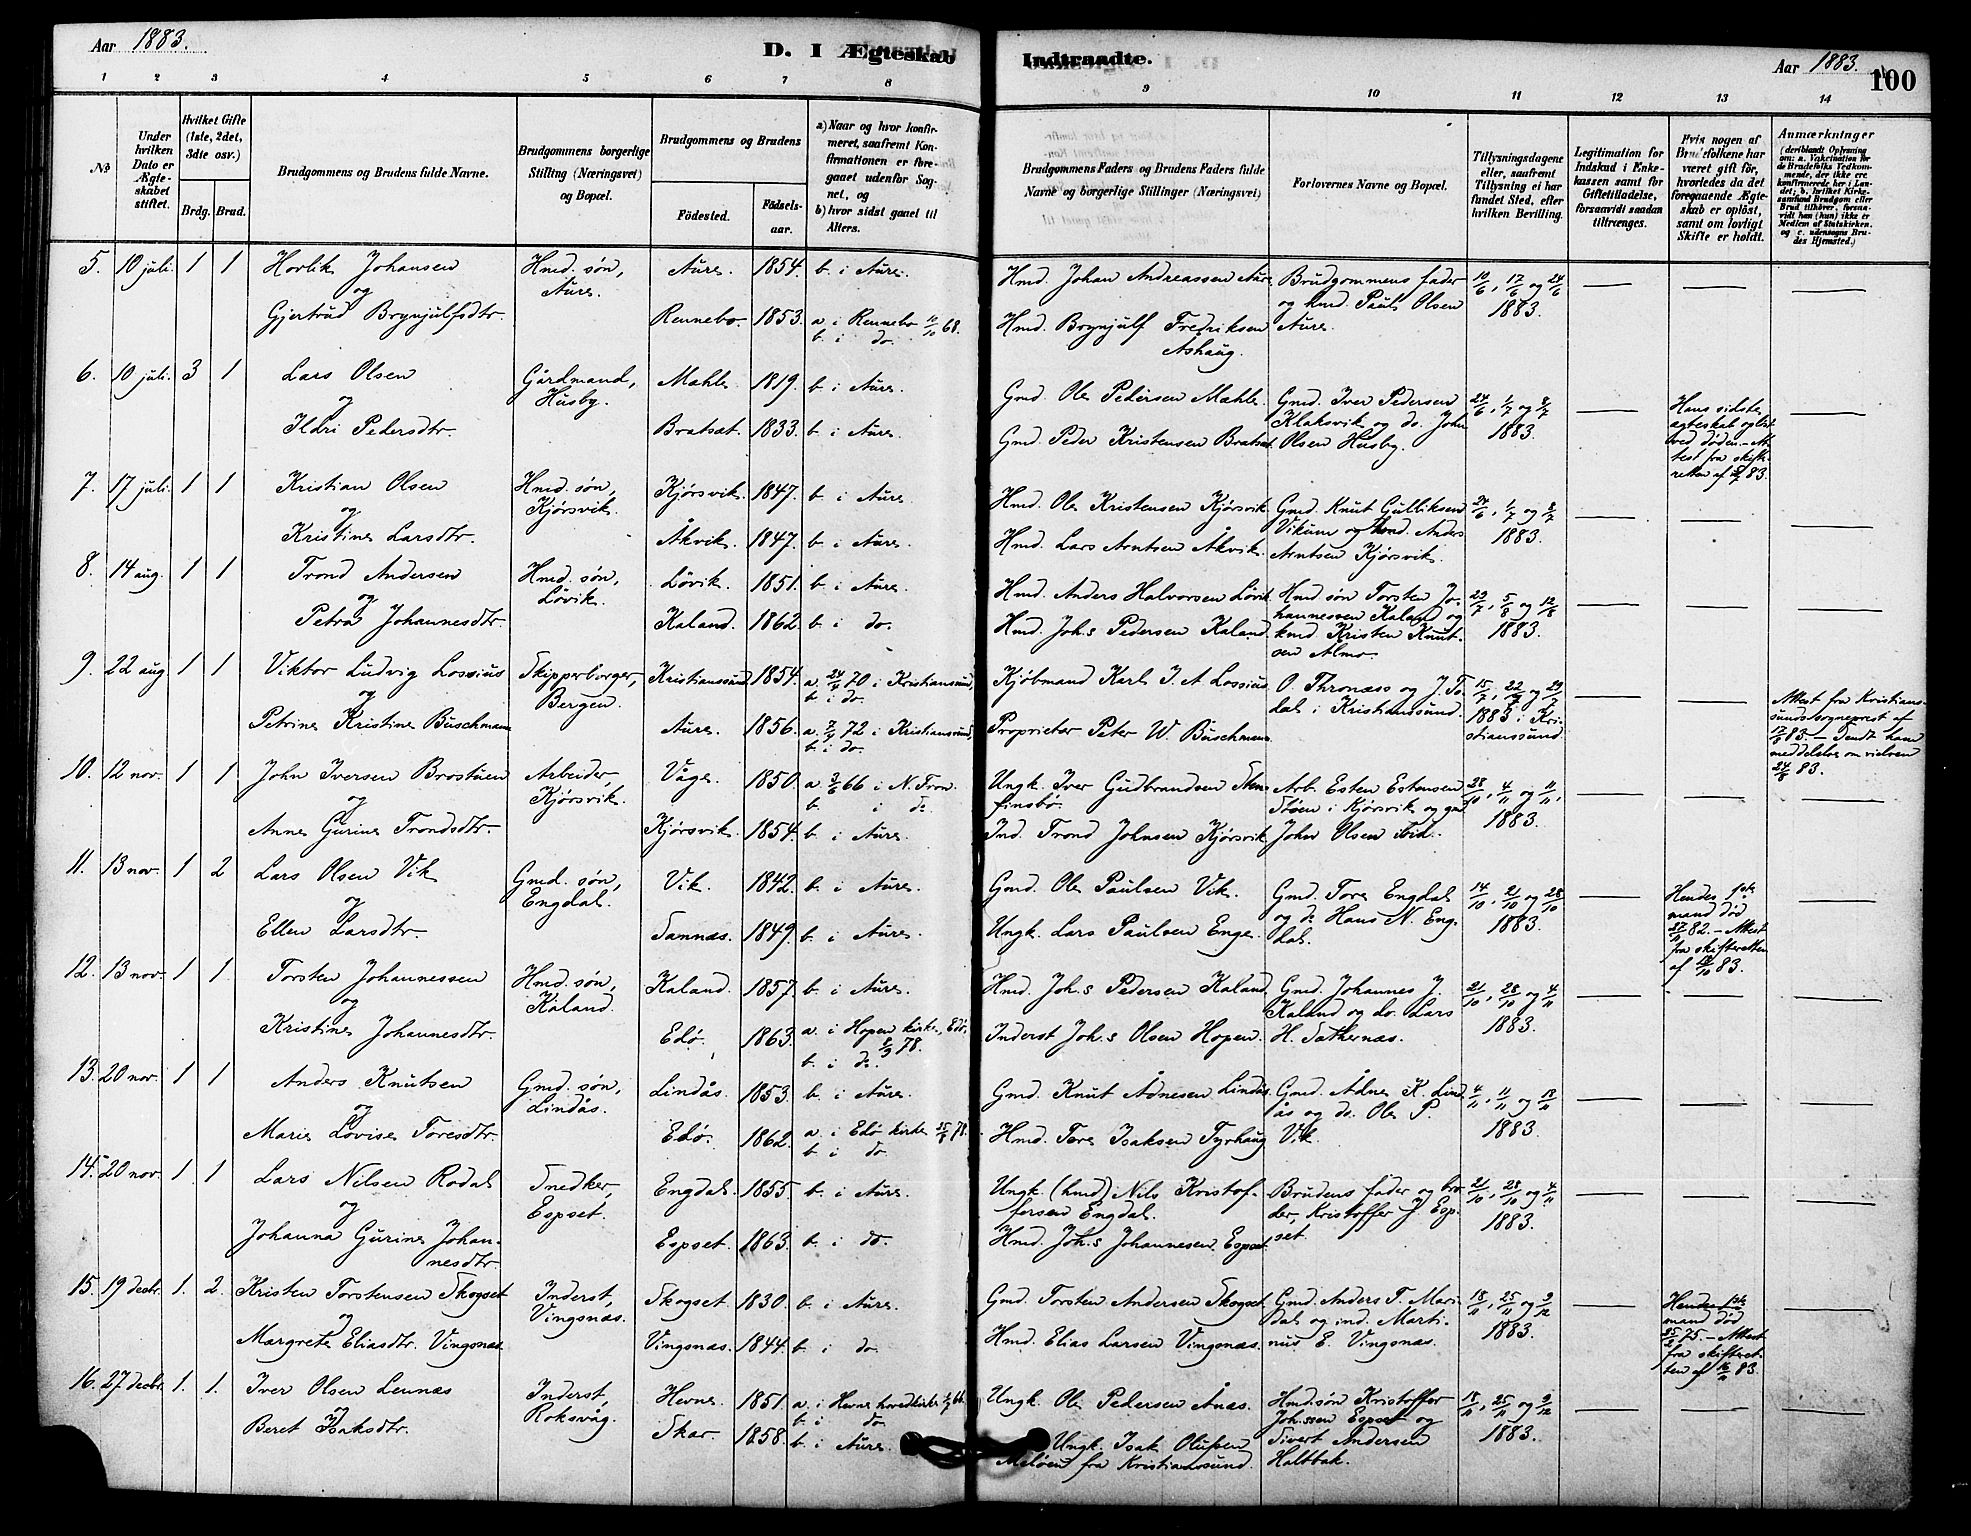 Aar 1883.
D. I Ægteskab Indtraadte.
Aar 1883.
100
1 2 3 4 5 6 7 8 9 10 11 12 13 14
№
Under hvilken Dato er Ægteskabet stiftet.
Hvilket Gifte (1ste, 2det, 3die osv.)
Brdg. Brud.
Brudgommens og Brudens fulde Navne.
Brudgommens borgerlige Stilling (Næringsvei) og Bopæl.
Brudgommens og Brudens
Födested.
Födsels-aar.
a) Naar og hvor konfirmeret, saafremt Konfirmationen er foregaaet udenfor Sognet, og
b) hvor sidst gaaet til Alters.
Brudgommens Faders og Brudens Faders fulde Navne og borgerlige Stillinger (Næringsvei)
Forlovernes Navne og Bopæl.
Tillysningsdagene eller, saafremt Tillysning ei har fundet Sted, efter hvilken Bevilling.
Legitimation for Indskud i Enkekassen samt for Giftetilladelse, forsaavidt saadan tiltrænges.
Hvis nogen af Brudefolkene har været gift før, hvorledes da det foregaaende Ægteskab er oplöst, samt om lovligt Skifte er holdt.
Anmærkninger (deriblandt Oplysning om: a. Vakcination for de Brudefolks Vedkommende, der ikke ere konfirmerede her i Landet; b. hvilket Kirkesamfund Brudgom eller Brud tilhörer, forsaavidt han (hun) ikke er Medlem af Statskirken, og c. udensogns Brudes Hjemsted.)
5. 10 juli. 1 1 Horlik Johansen Hmd. søn, Aure. Aure. 1854. b. i Aure. Hmd. Johan Andreassen Aure Brudgommens fader og hmd. Paul Olsen Aure. 10/6, 17/6 og 24/6 1883.
og
Gjertrud Brynjulfsdtr. Rennebo. 1853. a. i Rennebo 11/10 68. b. i do. Hmd. Brynjulf Fredriksen Ashaug.
6. 10 juli. 3 1 Lars Olsen Gårdmand, Husby. Mæhle. 1819. b. i Aure. Gmd. Ole Pedersen Mæhle. Gmd. Iver Pedersen Klaksvik og do. John Olsen Husby. 24/6, 1/7 og 8/7 1883. Hans sidste ægteskab opløst ved døden. - Attest fra skifteretten af 83.
og
Ildri Pedersdtr. Bratset. 1833. b. i Aure. Gmd. Peder Kristensen Bratset
7. 17 juli. 1 1 Kristian Olsen Hmd. søn, Kjørsvik. Kjørsvik. 1847. b. i Aure. Hmd. Ole Kristensen Kjørsvik. Gmd. Knut Gulliksen Vikum og hmd. Anders Arntsen Kjørsvik. 24/6, 1/7 og 8/7 1883.
og
Kristine Larsdtr. Åkvik. 1847. b. i Aure. Hmd. Lars Arntsen Åkvik.
8. 14 aug. 1 1 Trond Andersen Hmd. søn, Løvik. Løvik. 1851. b. i Aure. Hmd. Anders Halvorsen Løvik. Hmd søn Torsten Johannessen Kaland og hmd. Kristen Knutsen Almo. 29/7, 5/8 og 12/8 1883.
og
Petra Johannesdtr. Kaland. 1862. b. i do. Hmd. Joh.s Pedersen Kaland.
9. 22 aug. 1 1 Viktor Ludvig Lossius Skipperborger, Bergen. Kristianssund. 1854. a. 24/4 70 i Kristianssund, b. i do. Kjøbmand Karl I. A. Lossius. O. Thronæss og J. Todal i Kristianssund. 15/7, 22/7 og 29/7 1883 i Kristianssund. Attest fra Kristianssunds sogneprest af 83. - Sendt ham meddelelse om vielsen 24/8 83.
og
Petrine Kristine Buschmann Aure. 1856. a. 7/4 72 i Kristianssund, b. i do. Proprietær Peter W. Buschmann.
10. 12 nov. 1 1 John Iversen Brostuen Arbeider, Kjørsvik. Våge. 1850. a. 3/6 66 i N. Fron. b. i do. Ungk. Iver Gudbrandsen Stenfinsbø. Arb. Esten Estensen Støen i Kjørsvik og gmd John Olsen Eid. 28/10, 4/11 og 11/11, 1883.
og
Anne Gurine Trondsdtr. Kjørsvik. 1854. b. i Aure. Ind. Trond Johnsen Kjørsvik.
11. 13 nov. 1 2 Lars Olsen Vik Gmd. søn, Engdal. Vik. 1842. b. i Aure. Gmd. Ole Paulsen Vik. Gmd. Tore Engdal og do Hans N. Engdal. 14/10, 21/10 og 28/10 1883. Hendes 1ste mand død 82. - Attest fra skifteretten af 83.
og
Ellen Larsdtr. Samnæs. 1849. b. i Aure. Ungk. Lars Paulsen Enge.
12. 13 nov. 1 1. Torsten Johannessen Hmd. søn, Kaland. Kaland. 1857. b. i Aure. Hmd. Joh.s Pedersen Kaland. Gmd. Johannes J. Kaland og do. Lars H. Sæthernæs. 21/10, 28/10 og 4/11 1883.
og
Kristine Johannesdtr. Edø. 1863. a. i Hopen kirke, Edø, 8/9 78. b. i do. Inderst Joh.s Olsen Hopen.
13. 20 nov. 1 1 Anders Knutsen Gmd. søn, Lindås. Lindås. 1853. b. i Aure. Gmd. Knut Ådnesen Lindås Gmd. Ådne K. Lindås og do. Ole P. Vik. 4/11, 11/11 og 18/11 1883.
og
Marie Lovise Toresdtr. Edø. 1862. a. i Edø kirke 78. b. i do Hmd. Tore Isaksen Tyrhaug
14. 20 nov. 1. 1 Lars Nilsen Rodal Snedker, Espset. Engdal. 1855. b. i Aure. Ungk. (hmd) Nils Kristoffersen Engdal. Brudens fader og broder, Kristoffer J. Espset. 21/10, 28/10 og 4/11 1883.
og
Johanna Gurine Johannesdtr. Espset. 1863. b. i do. Hmd. Joh.s Johannesen Espset.
15. 19 decbr. 1. 2. Kristen Torstensen Skogset Inderst, Vingsnæs. Skogset. 1830. b. i Aure. Gmd. Torsten Andersen Skogset. Gmd. Anders T. Maridal og ind. Martinus E. Vingsnæs. 18/11, 25/11 og 2/12 1883. Hendes 1ste mand død 75. - Attest fra skifteretten af 83.
og
Margrete Eliasdtr. Vingsnæs. Vingsnæs. 1844. b. i do. Hmd. Elias Larsen Vingsnæs.
16. 27 decbr. 1. 1. Iver Olsen Lennæs Inderst, Roksvåg. Hevne. 1851. a. i Hevne hovedkirke 66. b. i do Ungk. Ole Pedersen Ånæs. Hmd. søn Kristoffer Joh.ssen Espset og Sivert Andersen Haltbak. 18/11, 25/11 og 2/12 1883.
og
Beret Isaksdtr. Skar. 1858. b. i Aure. Ungk. Isak Olufsen Meløen fra Kristianssund.